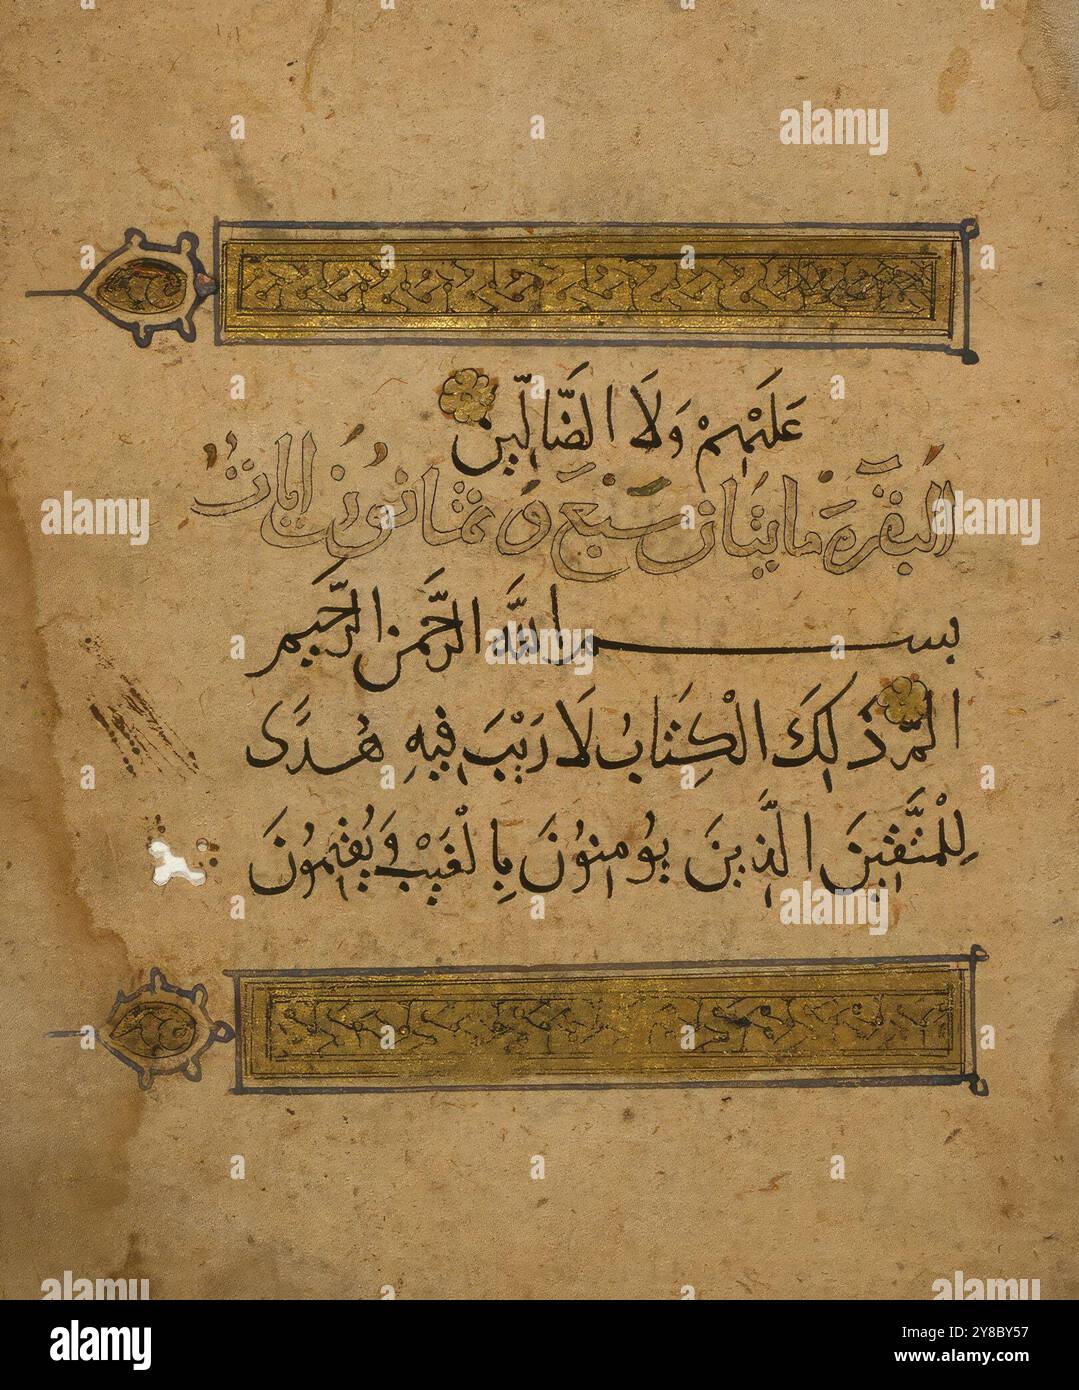 عَلَيْهِمْ وَلَا الضَّالِّينَ
البَقَرَة مايتان سَبْع وَثمانون ايات
بسم الله الرَّحْمن الرَّحِيمِ
الم ذَلِكَ الْكِتَابُ لَا رَيْبَ فِيهِ هُدًى
لِلْمُتَّقِينَ الَّذِينَ يُومِنُونَ بِالْغَيْبِ وَيُقِيمُونَ
alamy
Image ID: 2Y8BY57
www.alamy.com